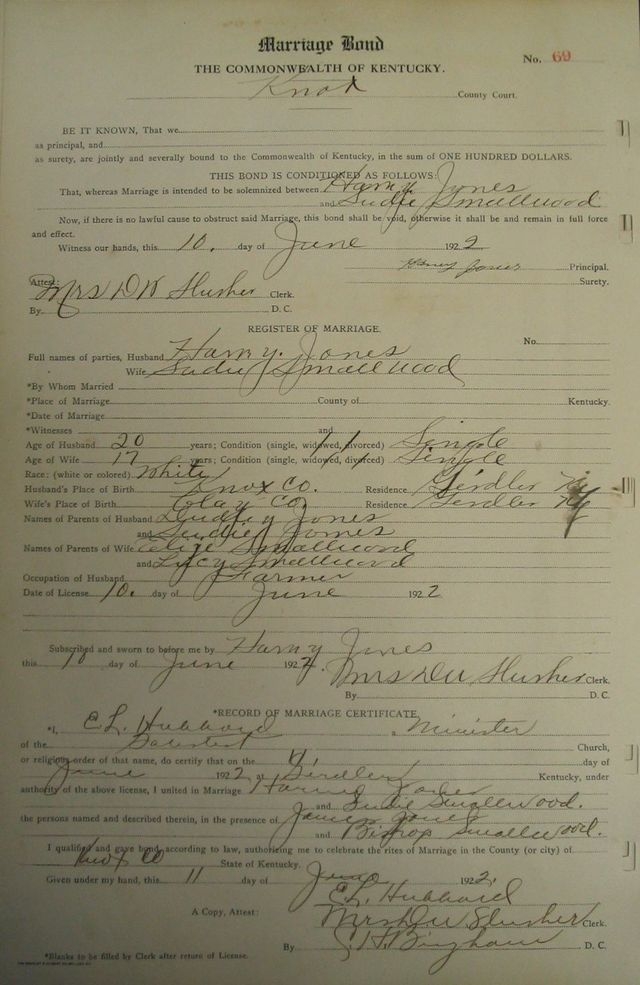 Marriage Bond
No. 69
THE COMMONWEALTH OF KENTUCKY.
Knox County Court.
BE IT KNOWN, That we
as principal, and
as surety, are jointly and severally bound to the Commonwealth of Kentucky, in the sum of ONE HUNDRED DOLLARS.
THIS BOND IS CONDITIONED AS FOLLOWS:
That, whereas Marriage is intended to be solemnized between Harry Jones
and Sudie Smallwood
Now, if there is no lawful cause to obstruct said Marriage, this bond shall be void, otherwise it shall be and remain in full force
and effect.
Witness our hands, this 10. day of June 1922
Harry Jones Principal.
Attest: Surety.
Mrs D W Slusher Clerk.
By D. C.
REGISTER OF MARRIAGE.
No.
Full names of parties, Husband Harry Jones
Wife Sudie Smallwood
*By Whom Married
*Place of Marriage County of Kentucky.
*Date of Marriage
*Witnesses and
Age of Husband 20 years; Condition (single, widowed, divorced) Single
Age of Wife 17 years; Condition (single, widowed, divorced) Single
Race: (white or colored) White
Husband's Place of Birth Knox Co. Residence Girdler Ky
Wife's Place of Birth Clay Co. Residence Girdler Ky
Names of Parents of Husband Jones
and Jones
Names of Parents of Wife Smallwood
and Lucy Smallwood
Occupation of Husband Farmer
Date of License 10. day of June 1922
Subscribed and sworn to before me by Harry Jones
this 10 day of June 1922. Mrs D W Slusher Clerk.
By D. C.
*RECORD OF MARRIAGE CERTIFICATE
*I, E L. Hubbard a Minister
of the Baptist Church,
or religious order of that name, do certify that on the 11 day of
June 1922 at Girdler Kentucky, under
authority of the above license, I united in Marriage Harry Jones
and Sudie Smallwood.
the persons named and described therein, in the presence of James Jones
and Bishop Smallwood.
I qualified and gave bond according to law, authorizing me to celebrate the rites of Marriage in the County (or city) of
Knox Co State of Kentucky.
Given under my hand, this 11 day of June 1922.
E L. Hubbard
A Copy, Attest: Mrs D W Slusher Clerk.
By Bingham D. C.
*Blanks to be filled by Clerk after return of License.